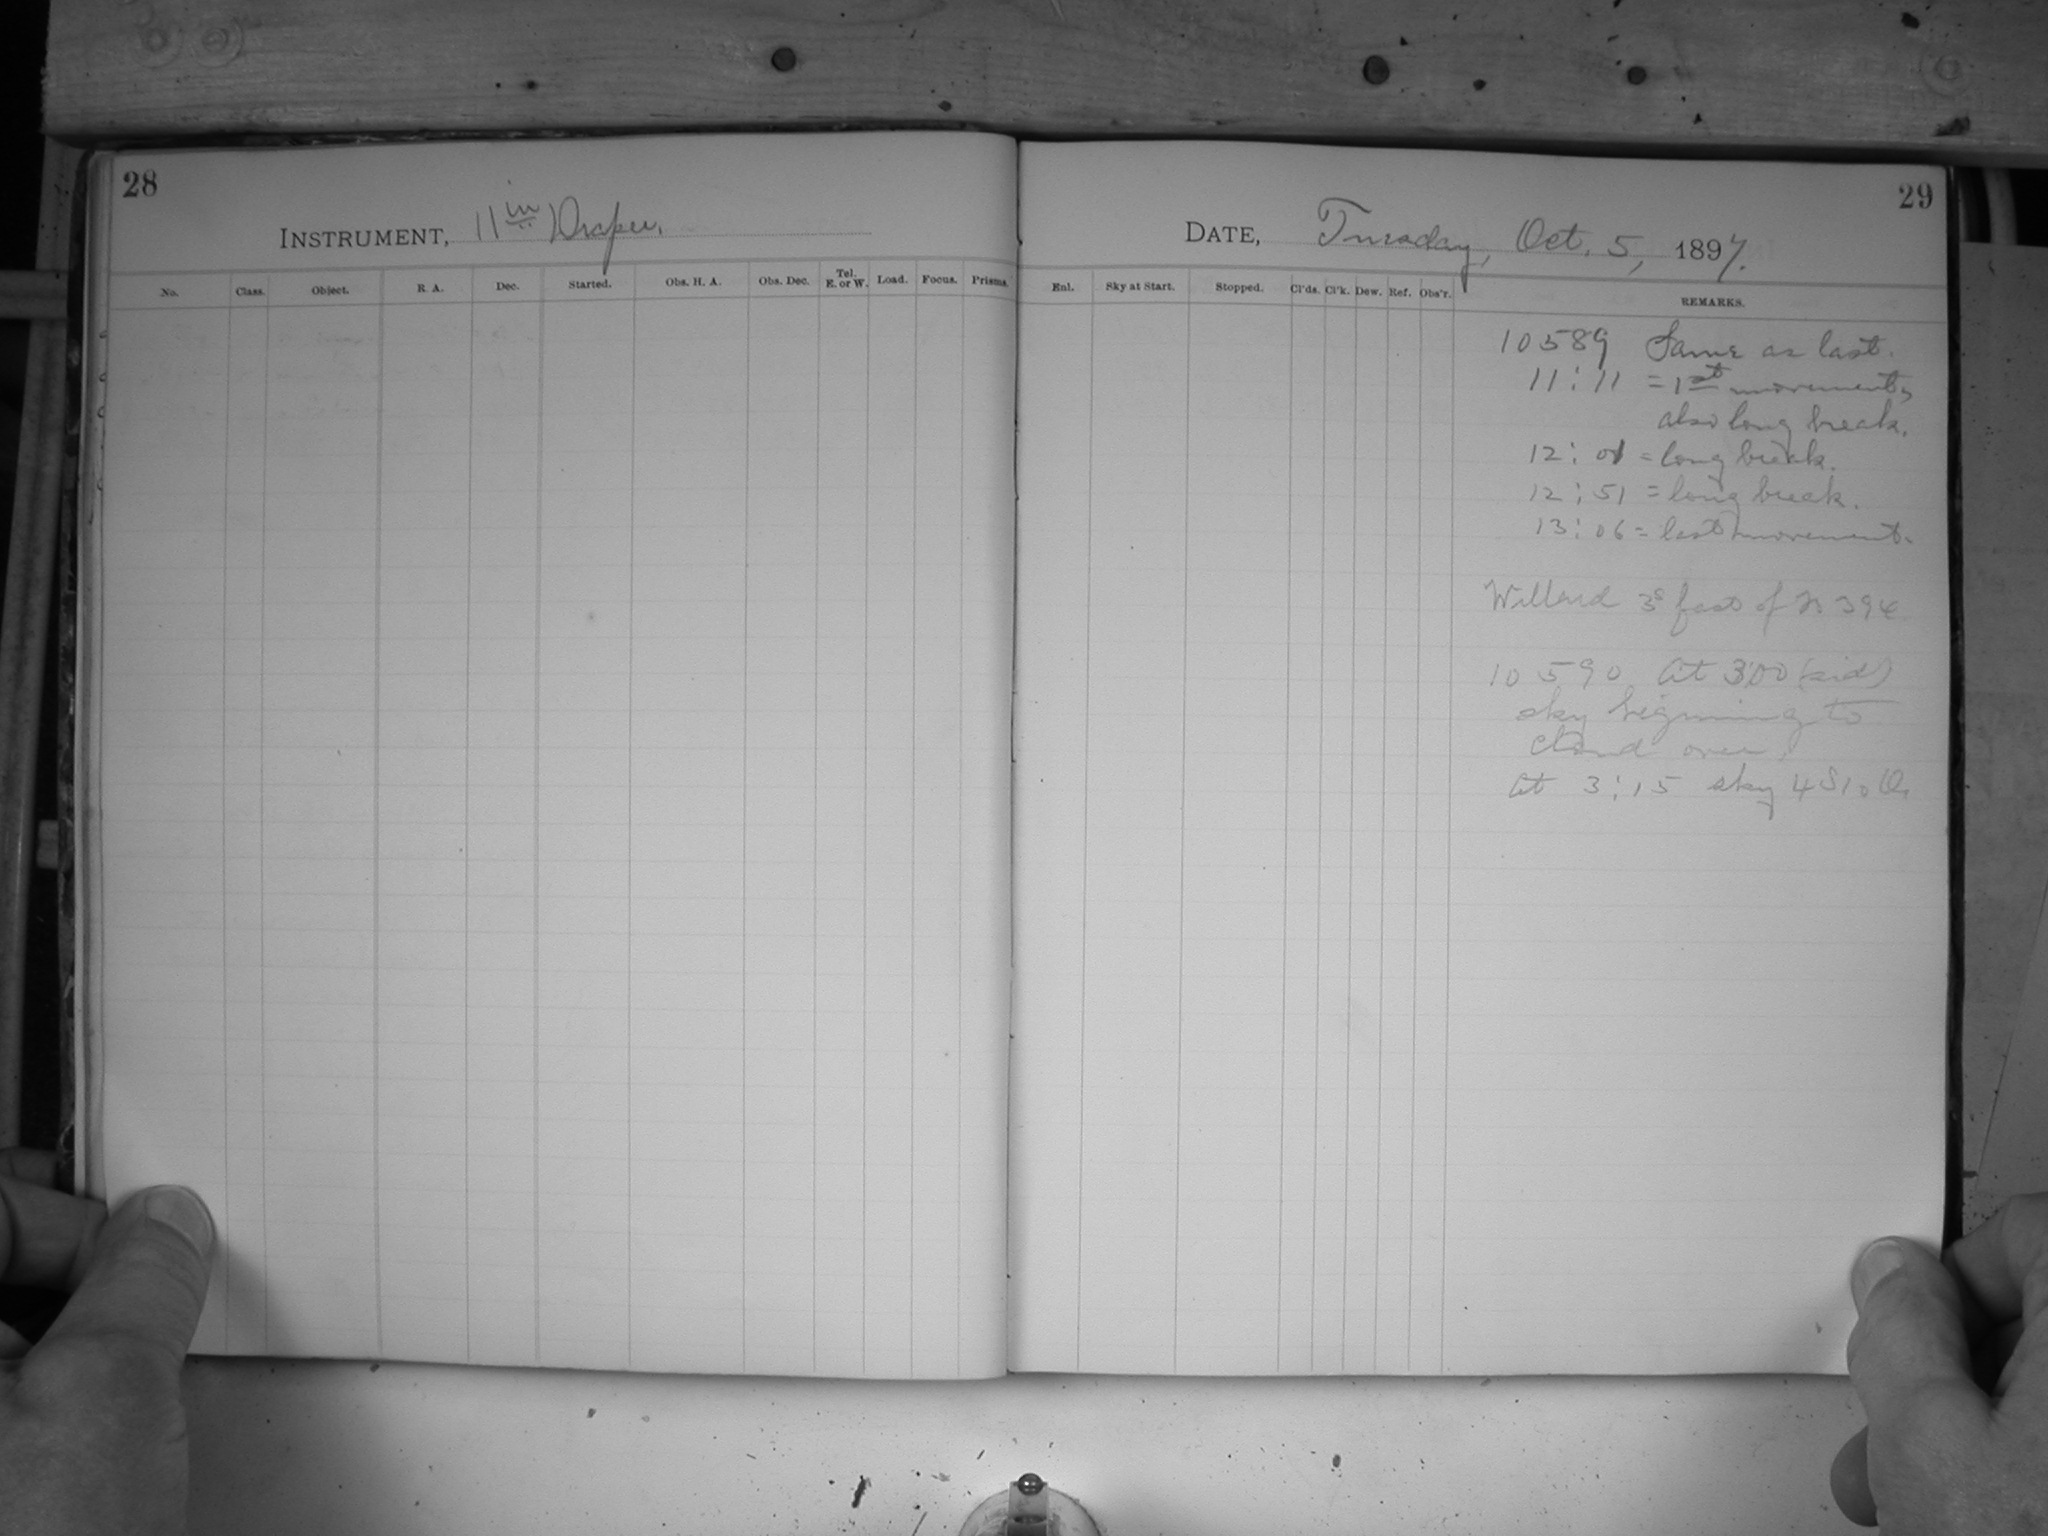 28
INSTRUMENT, 11 in Draper.
No. Class. Object. R. A. Dec. Started. Obs. H. A. Obs. Dec. Tel. E. or W. Load. Focus. Prisms.
29
DATE, Tuesday, Oct. 5, 1897.
Enl. Sky at Start. Stopped. Cl'ds. Cl'k. Dew. Ref. Obs'r. REMARKS.
10589 Same as last.
11:11 = 1st movement,
also long break.
12:01 = long break.
12:51 = long break.
13:06 = last movement.
Willard 3s fast of 394
10590 At 3:00 (sid)
sky beginning to
cloud over.
At 3:15 sky